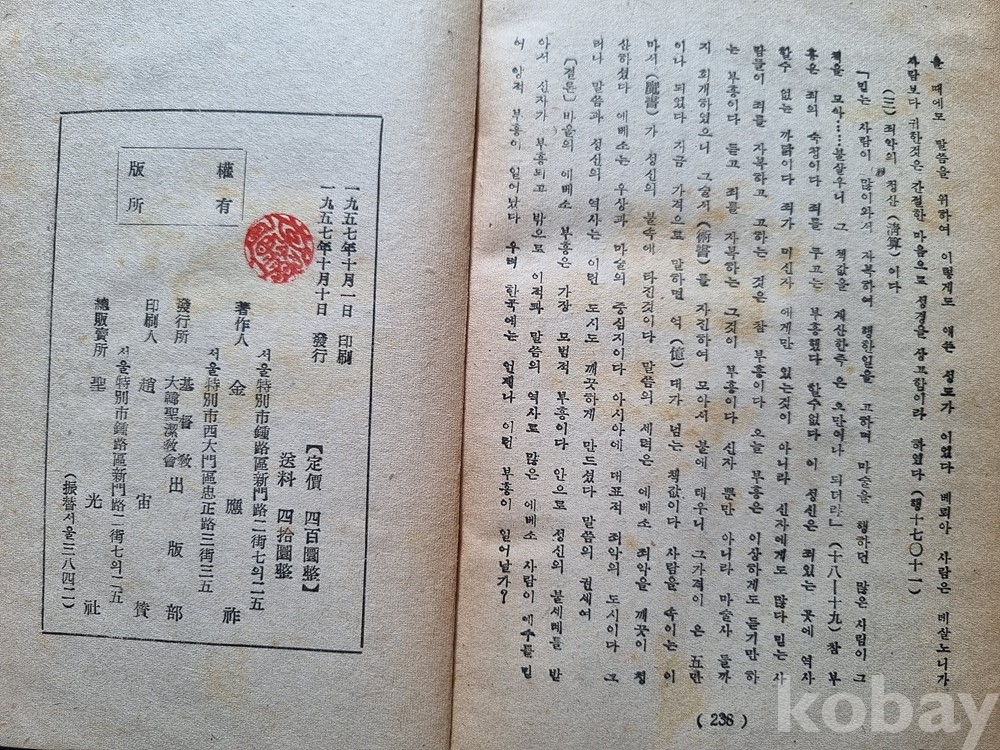 을 때에도 말씀을 위하여 이렇게도 애쓴 성도가 이였다 베뢰아 사람은 데살노니가
사람보다 귀한것은 간절한 마음으로 성경을 상고함이라 하였다 (행十七〇十一)
(三) 죄악의 청산 (清算) 이다
「믿는 사람이 많이와서 자복하여 행한일을 고하며 마술을 행하던 많은 사람이 그
책을 모아……불살우니 그 책값을 계산한즉 은 오만이나 되더라」 (十八―十九) 참 부
흥은 죄의 숙청이다 죄를 두고는 부흥했다 할수없다 이 성신은 죄있는 곳에 역사
할수 없는 까닭이다 죄가 미신자 에게만 있는것이 아니라 신자에게도 많다 믿는 사
람들이 죄를 자복하고 고하는 것은 참 부흥이다 오늘 부흥은 이상하게도 듣기만 하
는 부흥이다 듣고 죄를 자복하는 그것이 부흥이다 신자 뿐만 아니라 마술사 들까
지 회개하였으니 그술서 (術書) 를 자진하여 모아서 불에 태우니 그가격이 은 五만
이나 되였다 지금 가격으로 말하면 억 (億) 대가 넘는 책값이다 사람을 속이는 이
마서 (魔書) 가 성신의 불속에 타진것이다 말씀의 세력은 에베소 죄악을 깨끗이 청
산하셨다 에베소는 우상과 마술의 중심지이다 아시아에 대표적 죄악의 도시이다 그
러나 말씀과 성신의 역사는 이런 도시도 깨끗하게 만드셨다 말씀의 권세여
(결론) 바울의 에베소 부흥은 가장 모범적 부흥이다 안으로 성신의 불세례를 받
아서 신자가 부흥되고 밖으로 이적과 말씀의 역사로 많은 에베소 사람이 예수를 믿
어 양적 부흥이 일어났다 우리 한국에는 언제나 이런 부흥이 일어날가?
(238)
版權
所有
一九五七年十月一日 印刷
一九五七年十月十日 發行
【定價 四百圜整】
送料 四拾圜整
서울特別市鍾路區新門路二街七의二五
著作人 金應祚
서울特別市西大門區忠正路三街三五
發行所 基督敎大韓聖潔敎會出版部
印刷人 趙宙贊
서울特別市鍾路區新門路二街七의二五
總販賣所 聖光社
(振替서울三八四二)
kobay